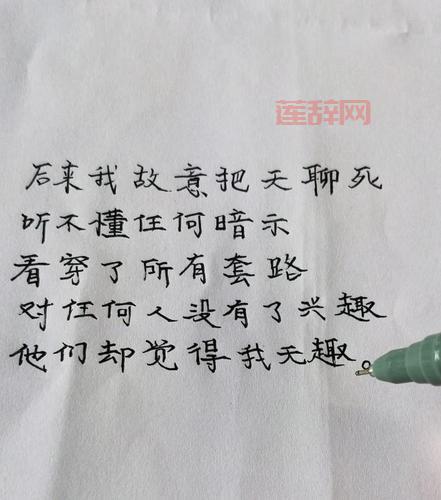 莲辞网
后来我故意把天聊死
听不懂任何暗示
看穿了所有套路
对任何人没有了兴趣
他们却觉得我无趣。